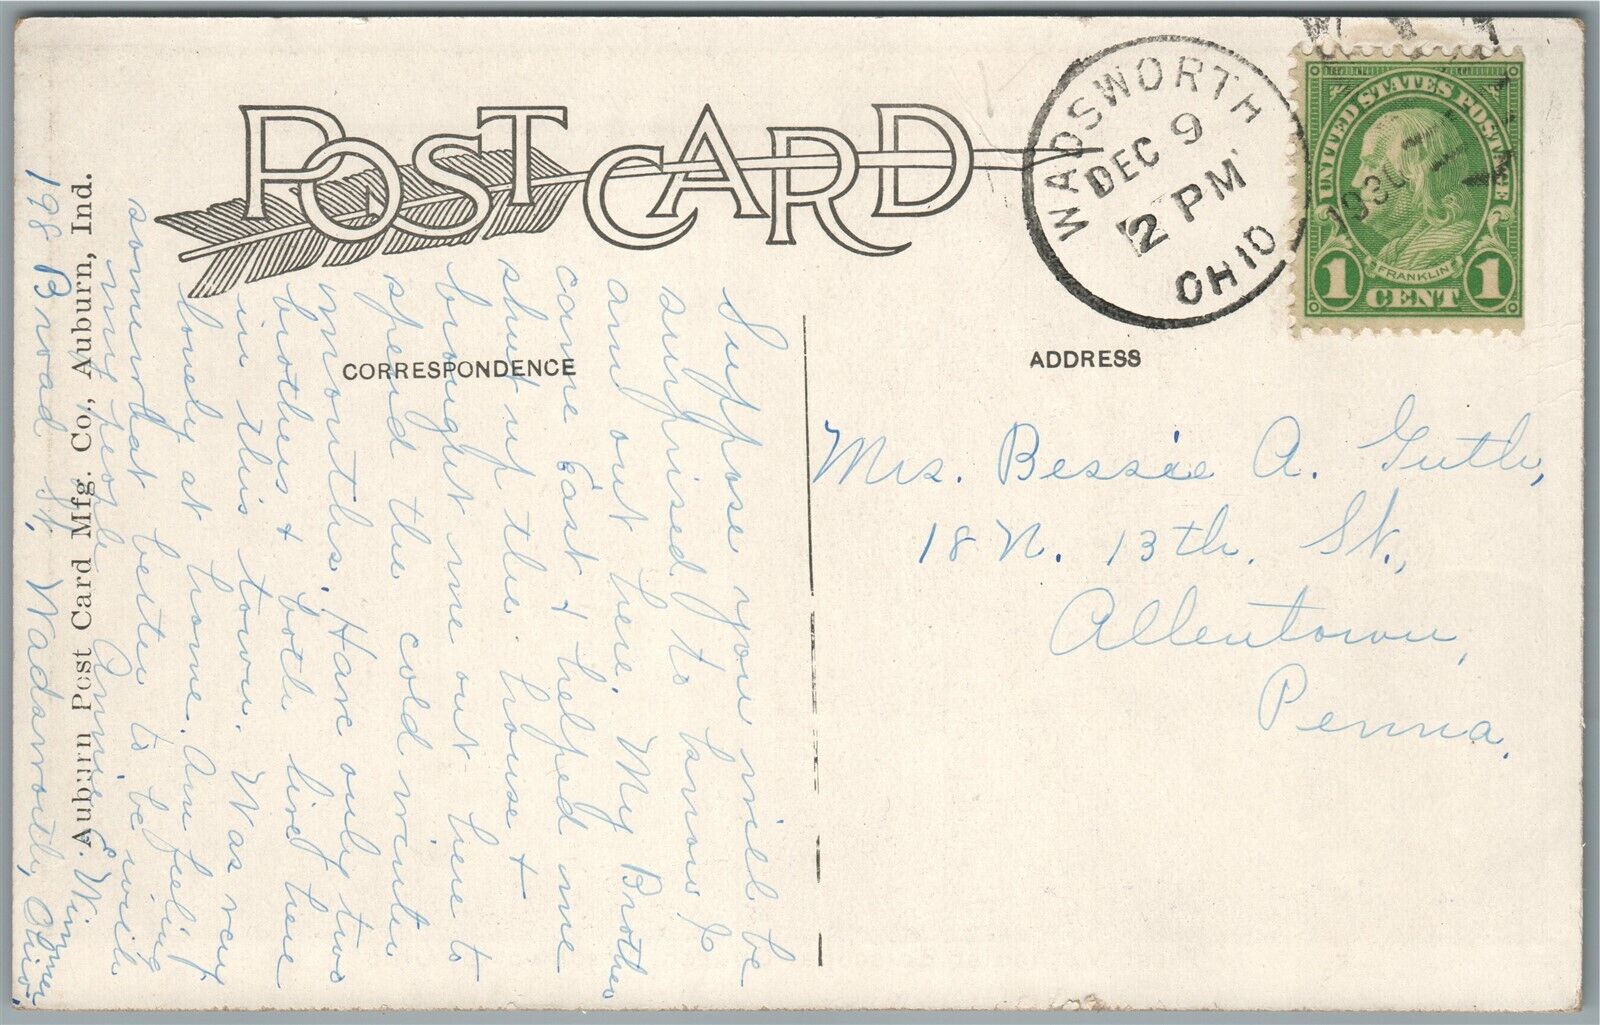 POST CARD
WADSWORTH
DEC 9
2 PM
1930
OHIO
UNITED STATES POSTAGE
FRANKLIN
1 CENT 1
CORRESPONDENCE
ADDRESS
Suppose you will be
surprised to know I
am out here. My Brother
came East & helped me
shut up the house &
brought me out here to
spend the cold winter
months. Have only two
brothers & both live here
in this town. Was very
lonely at home. Am feeling
somewhat better to be with
my people. Annie E. Wimmer
198 Broad St. Wadsworth, Ohio.
Mrs. Bessie A. Guth,
18 N. 13th. St.,
Allentown,
Penna.
Auburn Post Card Mfg. Co., Auburn, Ind.